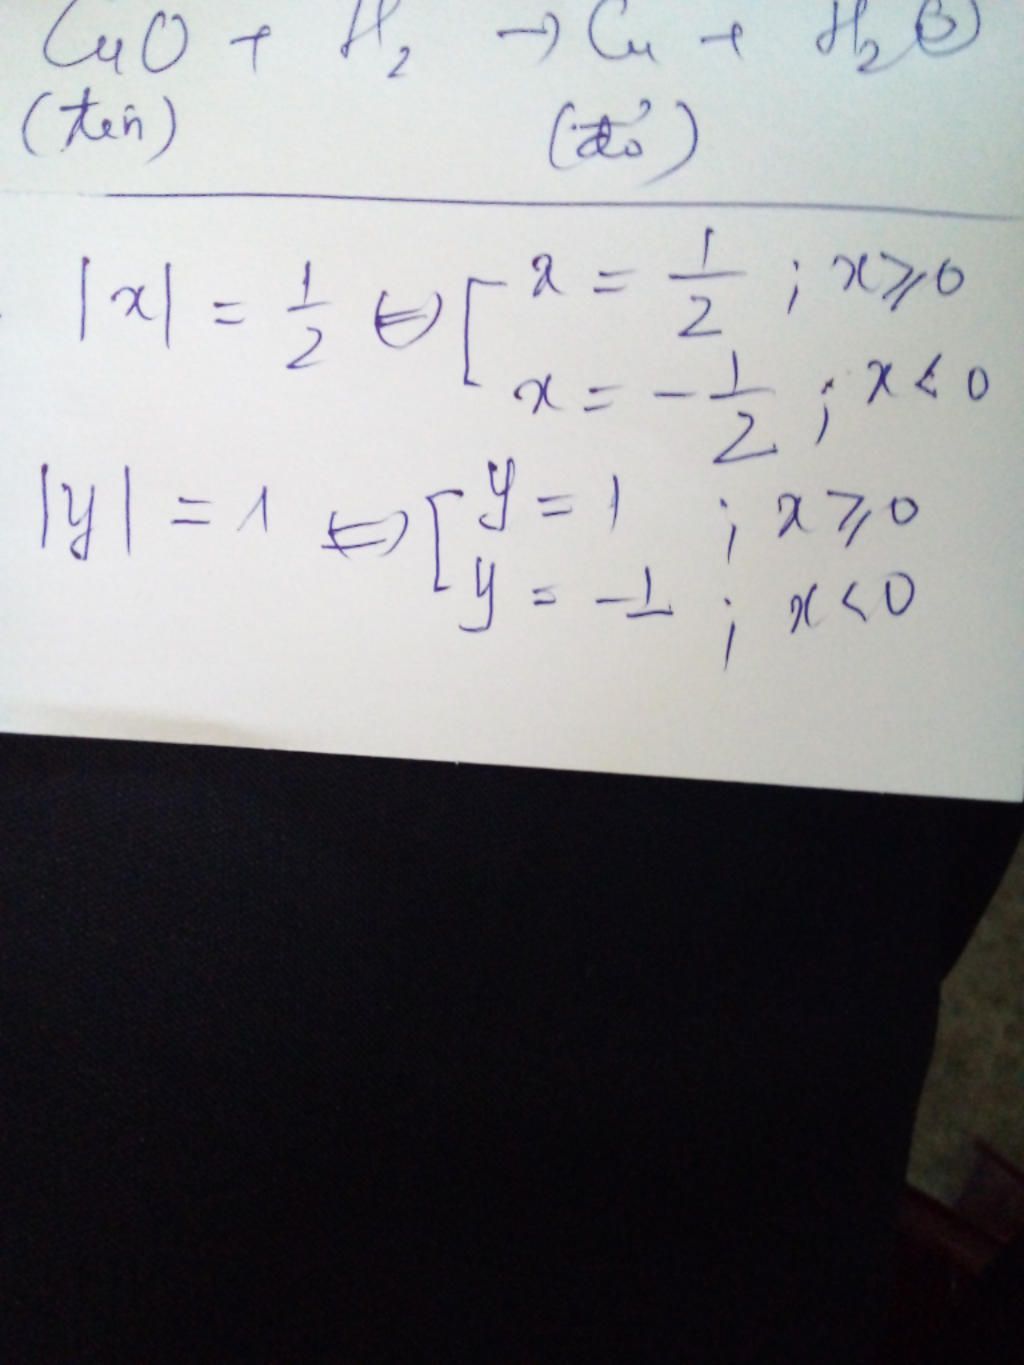 CuO + H₂ → Cu + H₂O
(đen) (đỏ)
|x| = 1/2 ⇔ [ x = 1/2 ; x ⩾ 0
x = -1/2 ; x < 0
|y| = 1 ⇔ [ y = 1 ; x ⩾ 0
y = -1 ; x < 0